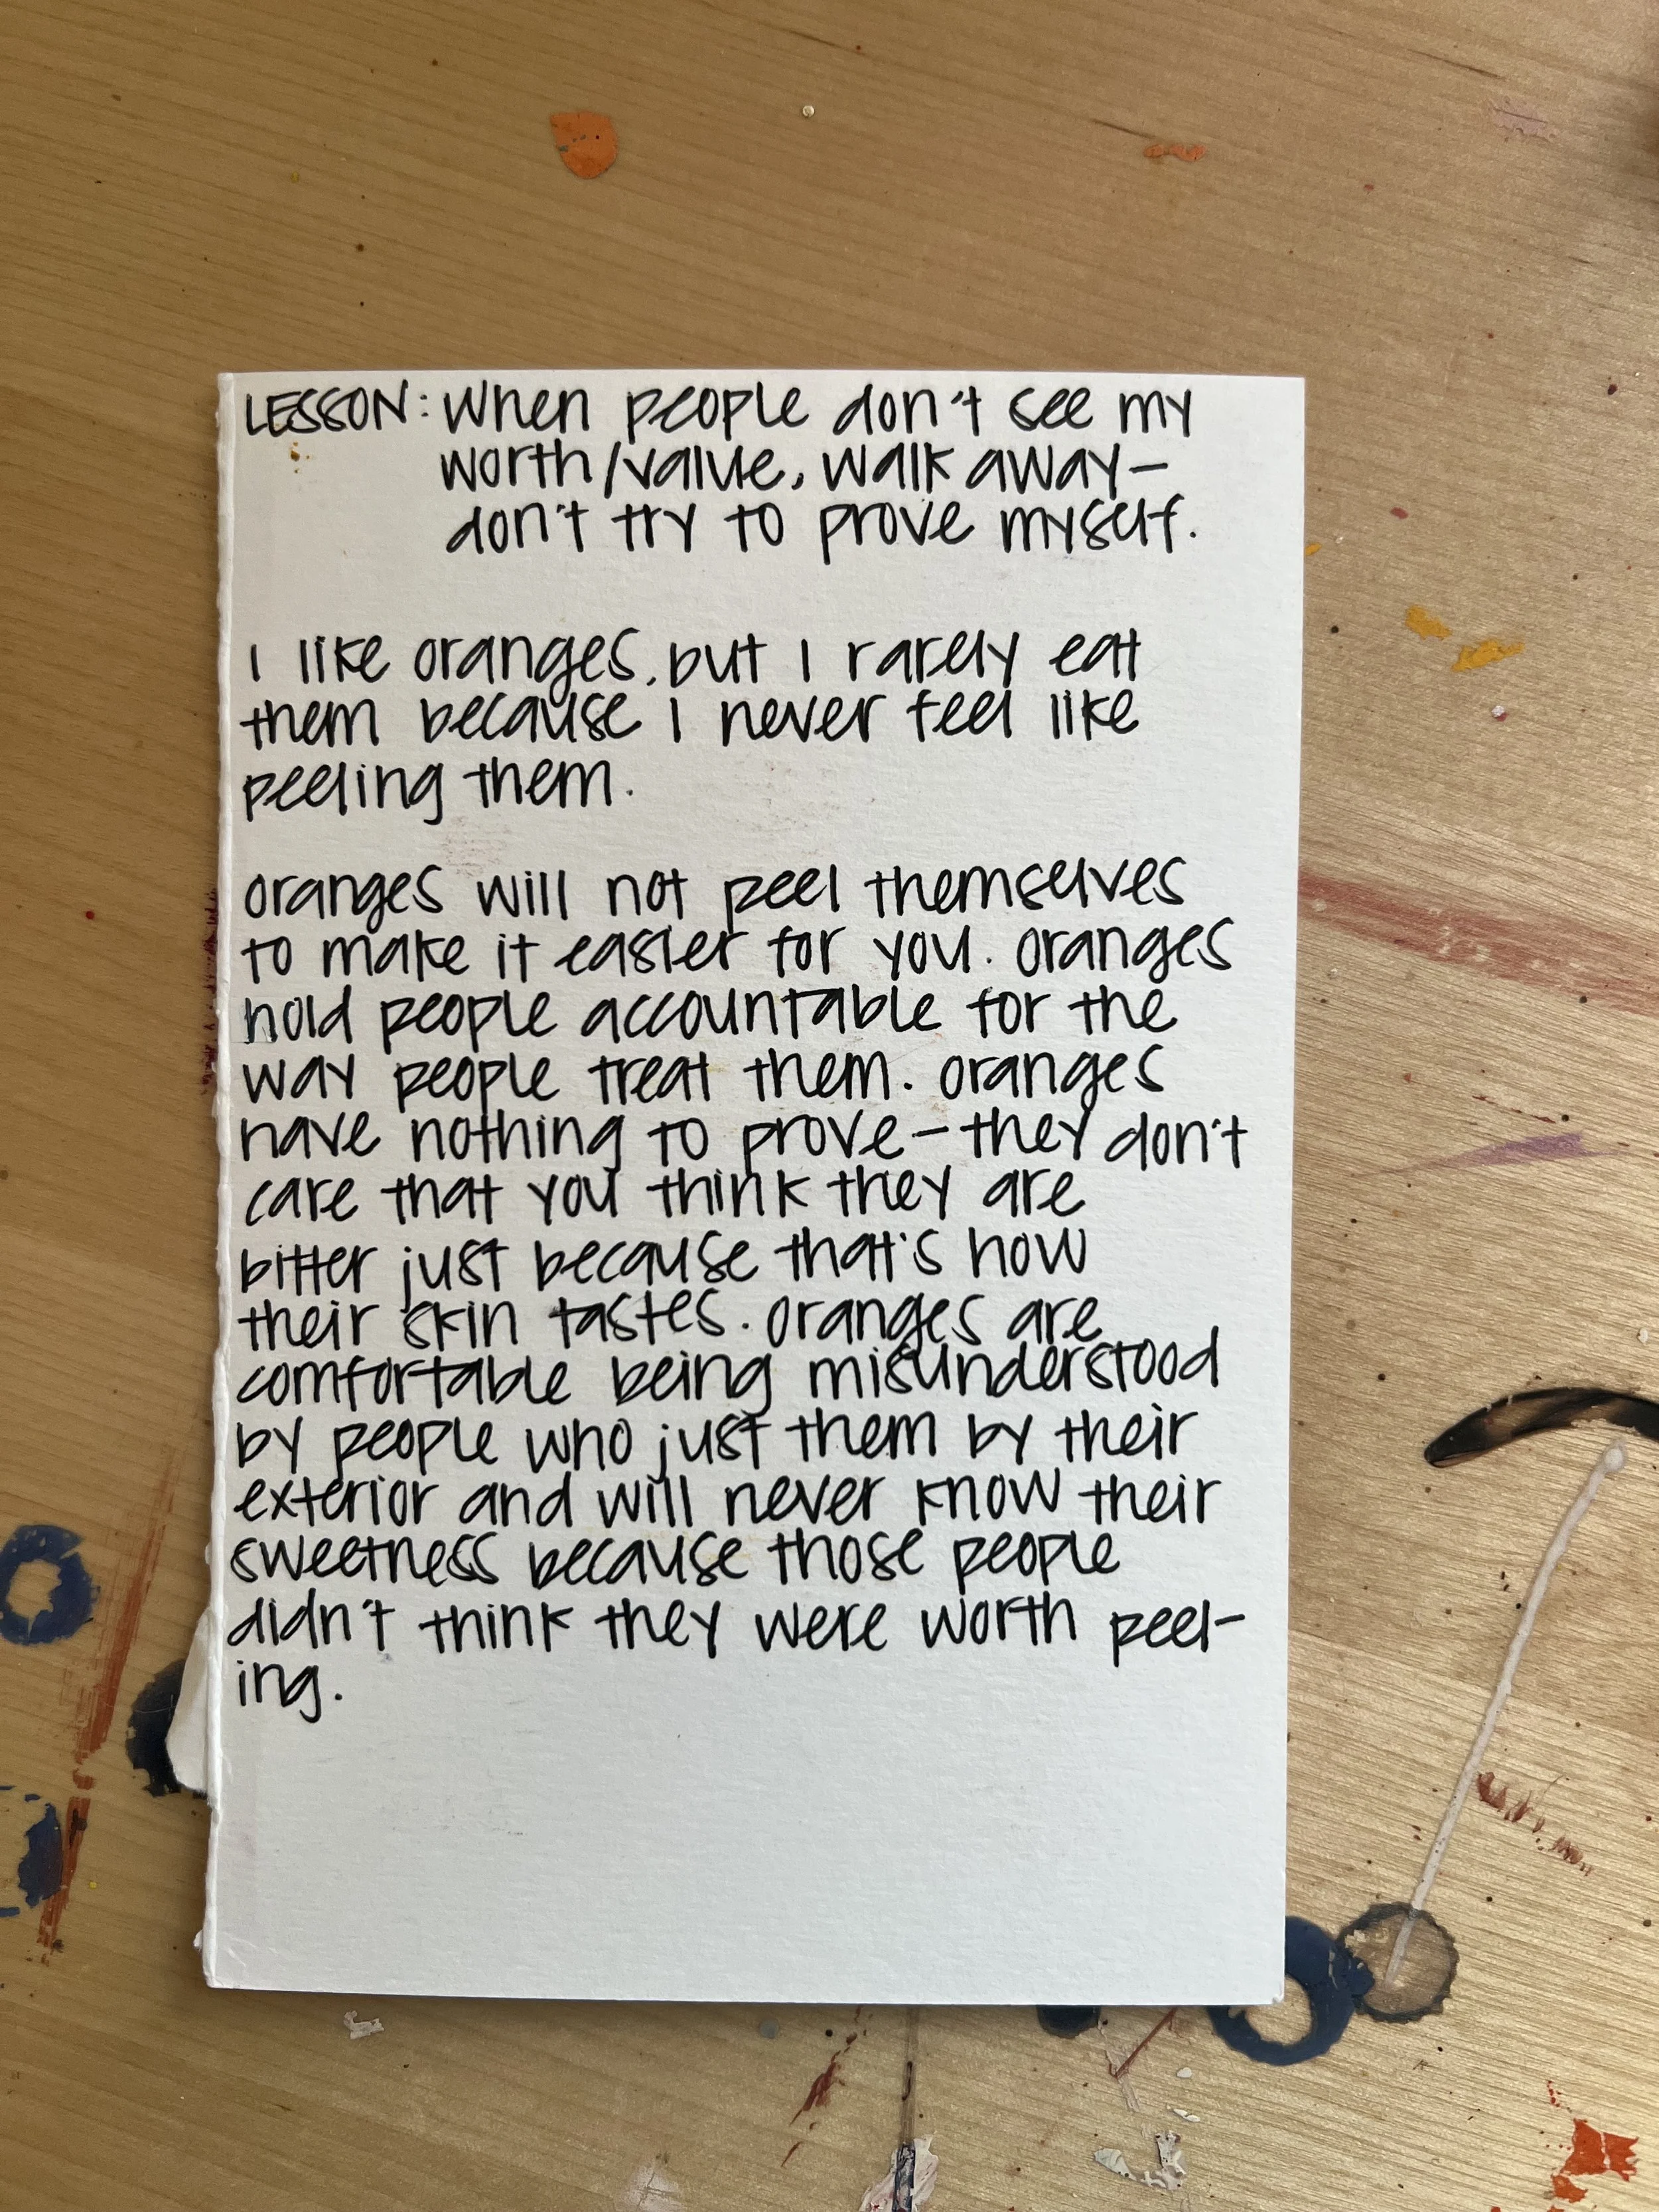 LESSON: When people don't see my
worth/value, walk away—
don't try to prove myself.
I like oranges, but I rarely eat
them because I never feel like
peeling them.
oranges will not peel themselves
to make it easier for you. oranges
hold people accountable for the
way people treat them. oranges
have nothing to prove—they don't
care that you think they are
bitter just because that's how
their skin tastes. oranges are
comfortable being misunderstood
by people who just them by their
exterior and will never know their
sweetness because those people
didn't think they were worth peel-
ing.